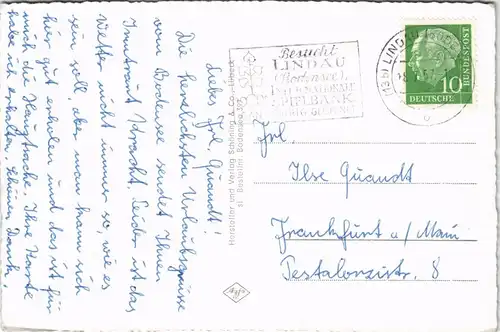 Liebes Frl. Quandt!
Die herzlichsten Urlaubsgrüsse
vom Bodensee sendet Ihnen
Irmtraut Leider ist das
Wetter nicht immer so, wie es
sein soll, aber man kann sich
hier gut erholen und das ist für
mich die Hauptsache. Ihre Karte
habe ich erhalten. Schönen Dank.
Hersteller und Verlag Schöning & Co., Lübeck
Bestellnr. Bodensee
Agfa
Besucht
LINDAU
(Bodensee)
INTERNATIONALE
SPIELBANK
LINDAU
DEUTSCHE
BUNDESPOST
10
Frl.
Ilse Quandt
Frankfurt a/Main
Pestalozzistr. 8